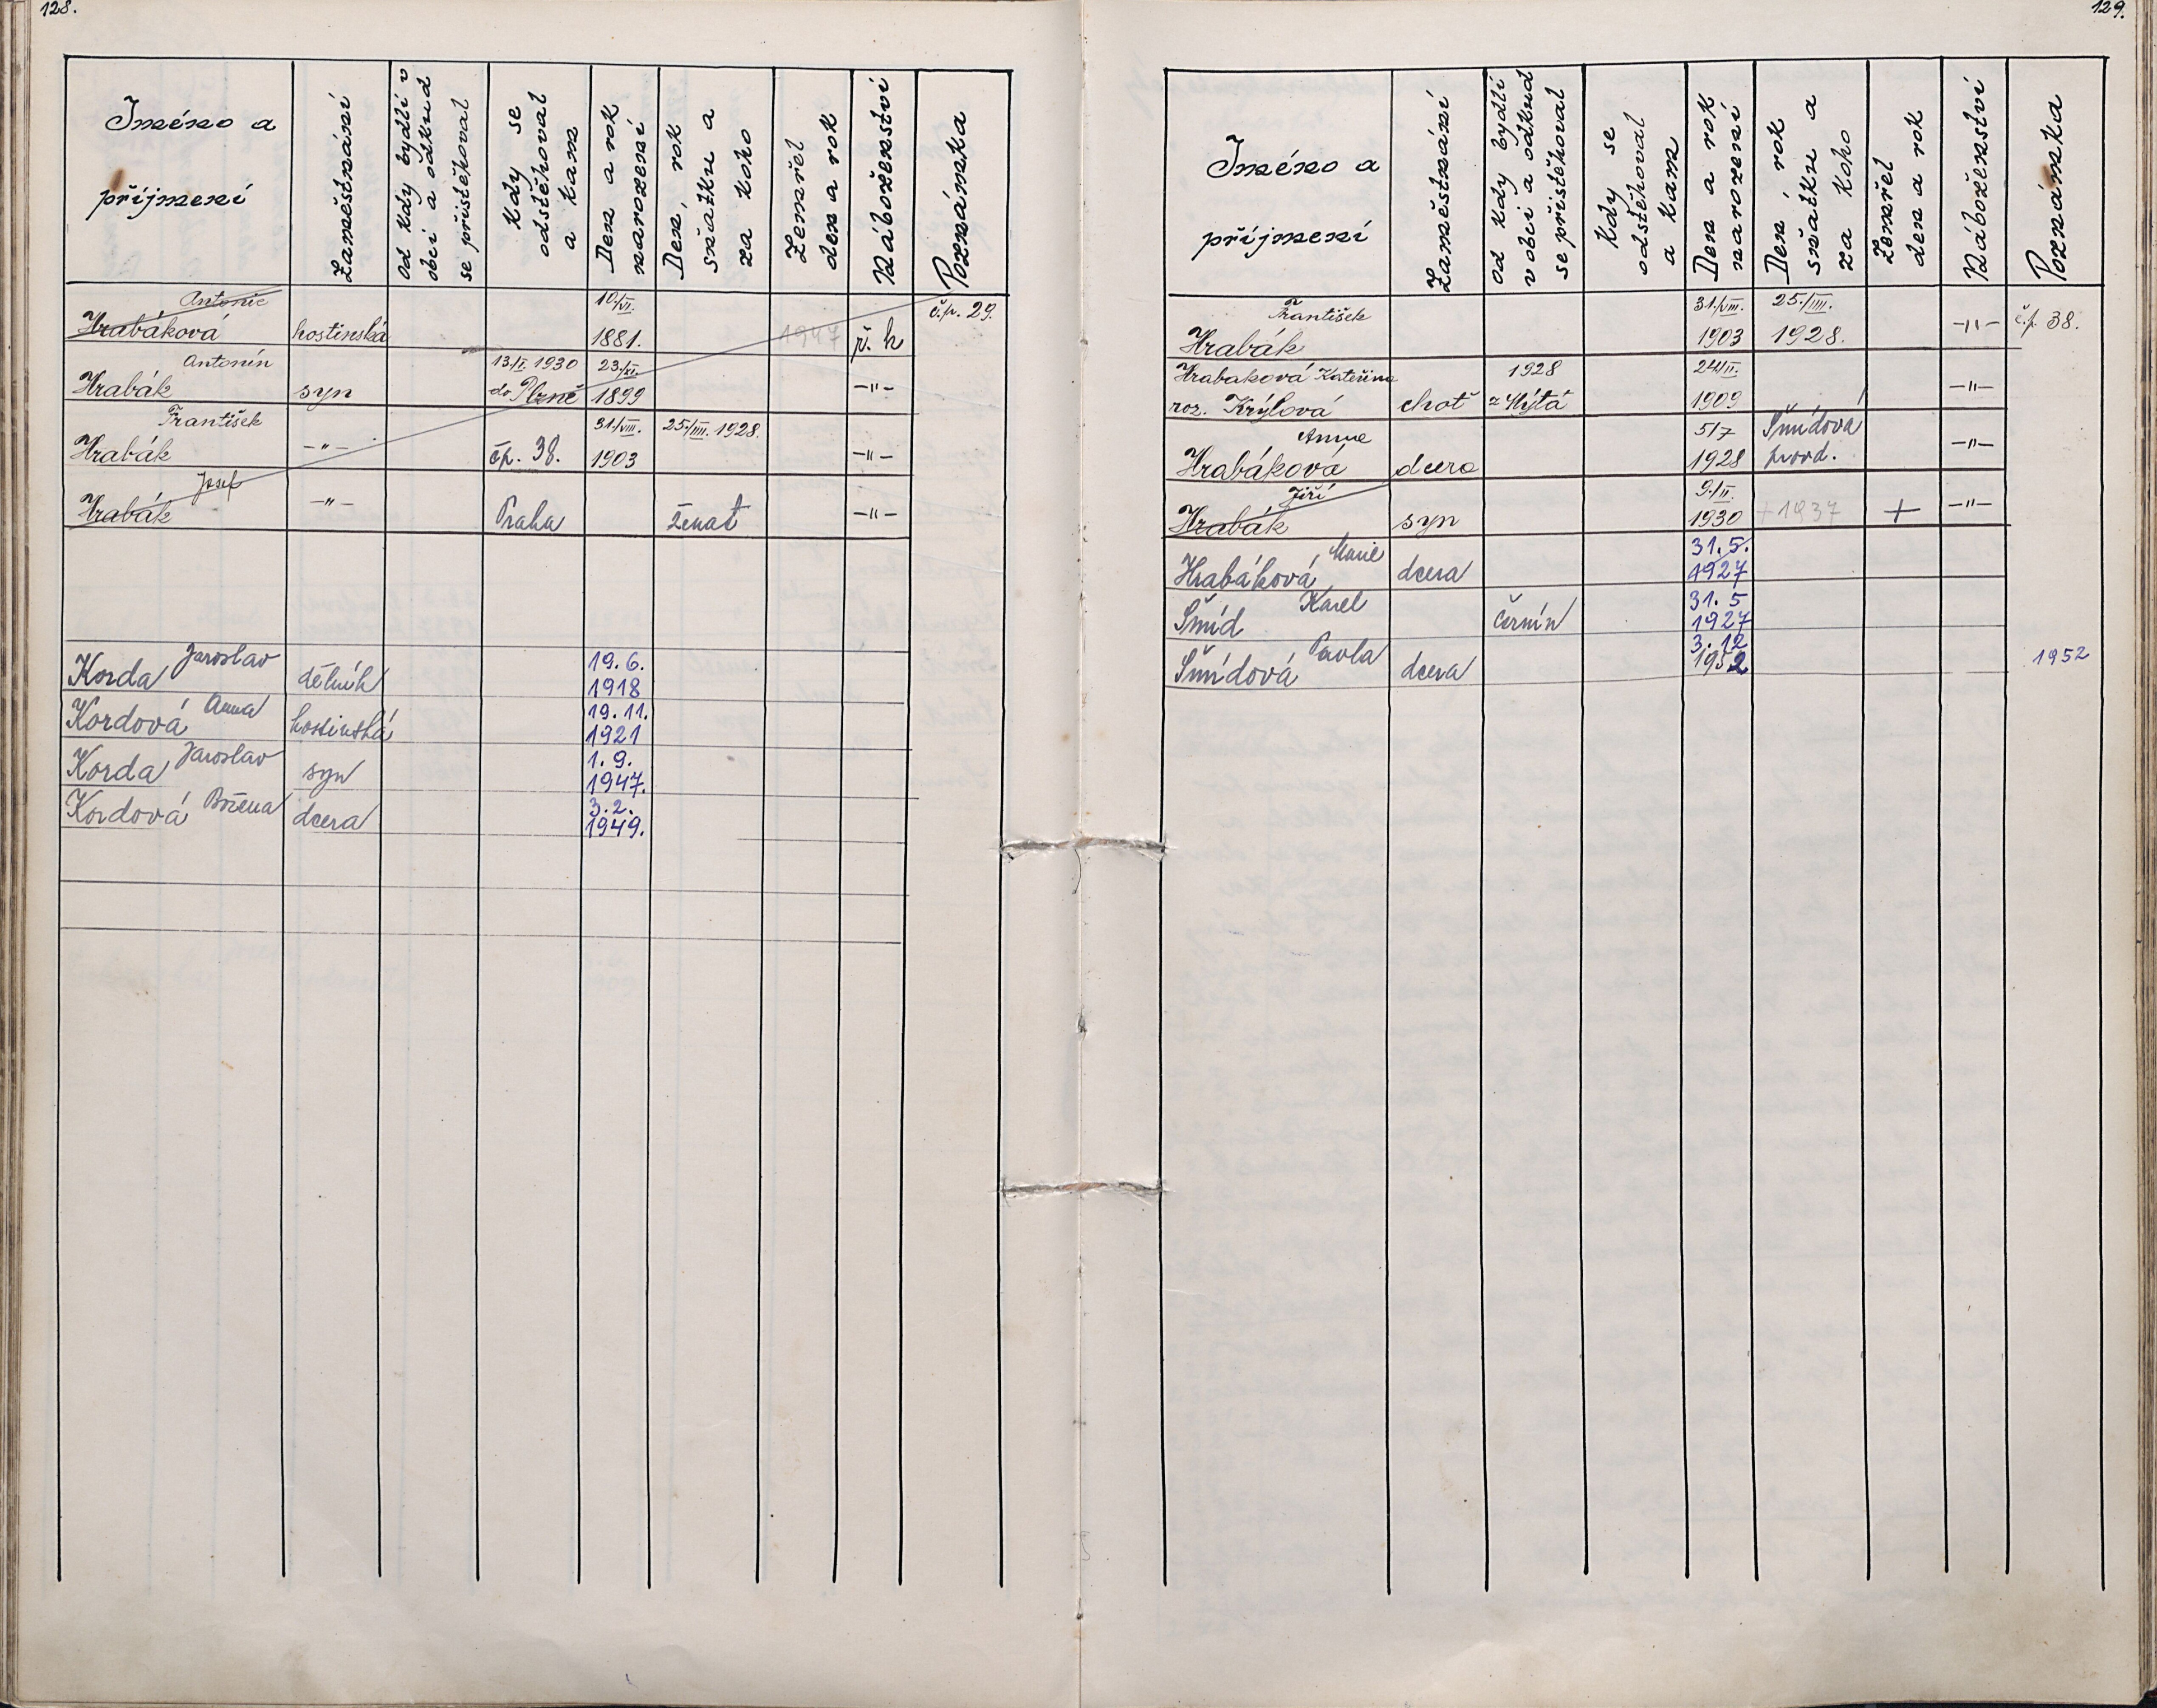 128.
Jméno a příjmení
Zaměstnání
Od kdy bydlí v obci a odkud se přistěhoval
Kdy se odstěhoval a kam
Den a rok narození
Den, rok sňatku a za koho
Zemřel den a rok
Náboženství
Poznámka
Antonie 10./VI. č.p. 29.
Hrabáková hostinská 1881. 1947 ř. k
Antonín 13./I. 1930 23./XI.
Hrabák syn do Plzně 1899 -"-
František 31./VIII. 25./IIII. 1928.
Hrabák -"- čp. 38. 1903 -"-
Josef
Hrabák -"- Praha ženat -"-
Jaroslav 19. 6.
Korda dělník 1918
Anna 19. 11.
Kordová hostinská 1921
Jaroslav 1. 9.
Korda syn 1947.
Božena 3. 2.
Kordová dcera 1949.
129.
Jméno a příjmení
Zaměstnání
Od kdy bydlí v obci a odkud se přistěhoval
Kdy se odstěhoval a kam
Den a rok narození
Den, rok sňatku a za koho
Zemřel den a rok
Náboženství
Poznámka
František 31./VIII. 25./IIII.
Hrabák 1903 1928. -"- č.p. 38.
Hrabaková Kateřina 1928 24./II.
roz. Krýlová choť z Mýtá 1909 -"-
Anna 5/7 Šmídová
Hrabáková dcera 1928 provd. -"-
Jiří 9./II.
Hrabák syn 1930 + 1937 + -"-
Marie 31. 5.
Hrabáková dcera 1927
Karel 31. 5
Šmíd Černín 1927
Pavla 3. 12
Šmídová dcera 1952 1952